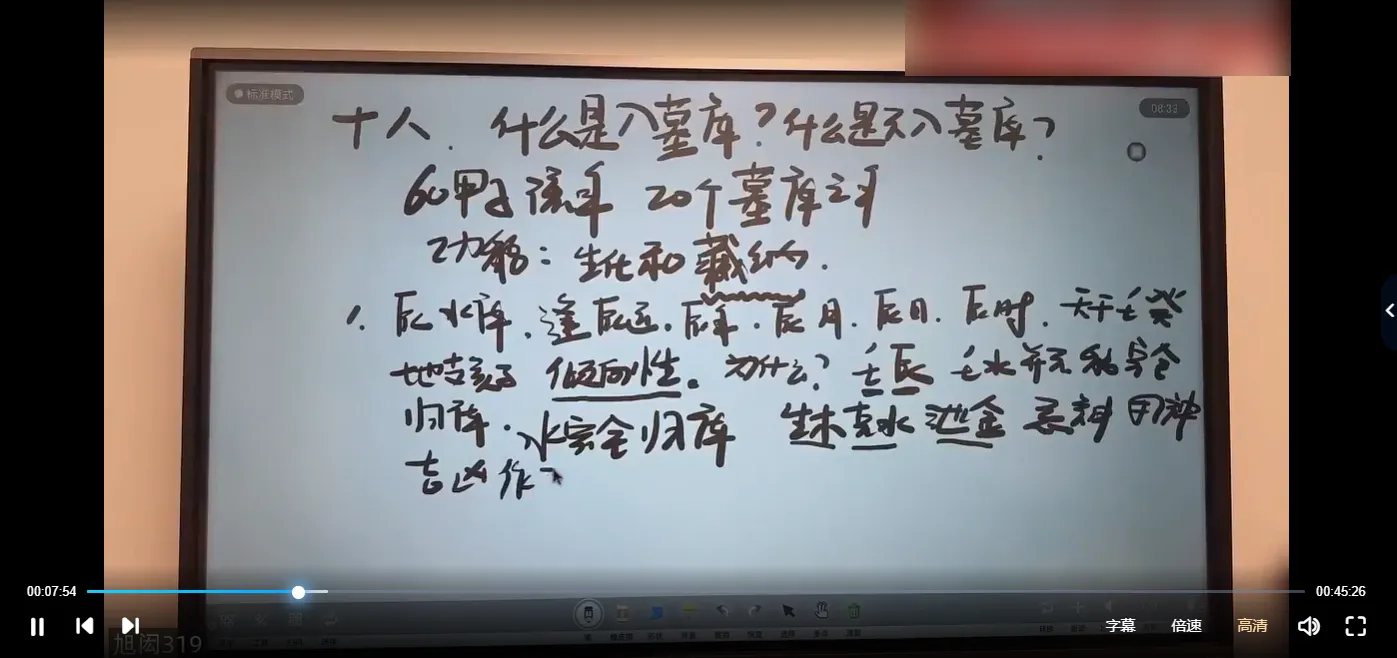 标准模式
08:33
十八. 什么是入墓库?什么是不入墓库?
60甲子 20个墓库之年
功能:生化和藏纳.
1. 辰水库.逢辰运.辰年.辰月.辰日.辰时.天干壬癸
地支亥子 倾向性。为什么?壬辰 壬水并不能完全
归库.水完全归库 生木克水泄金 忌神 用神
吉凶作
00:07:54
00:45:26
字幕
倍速
高清
旭闳319